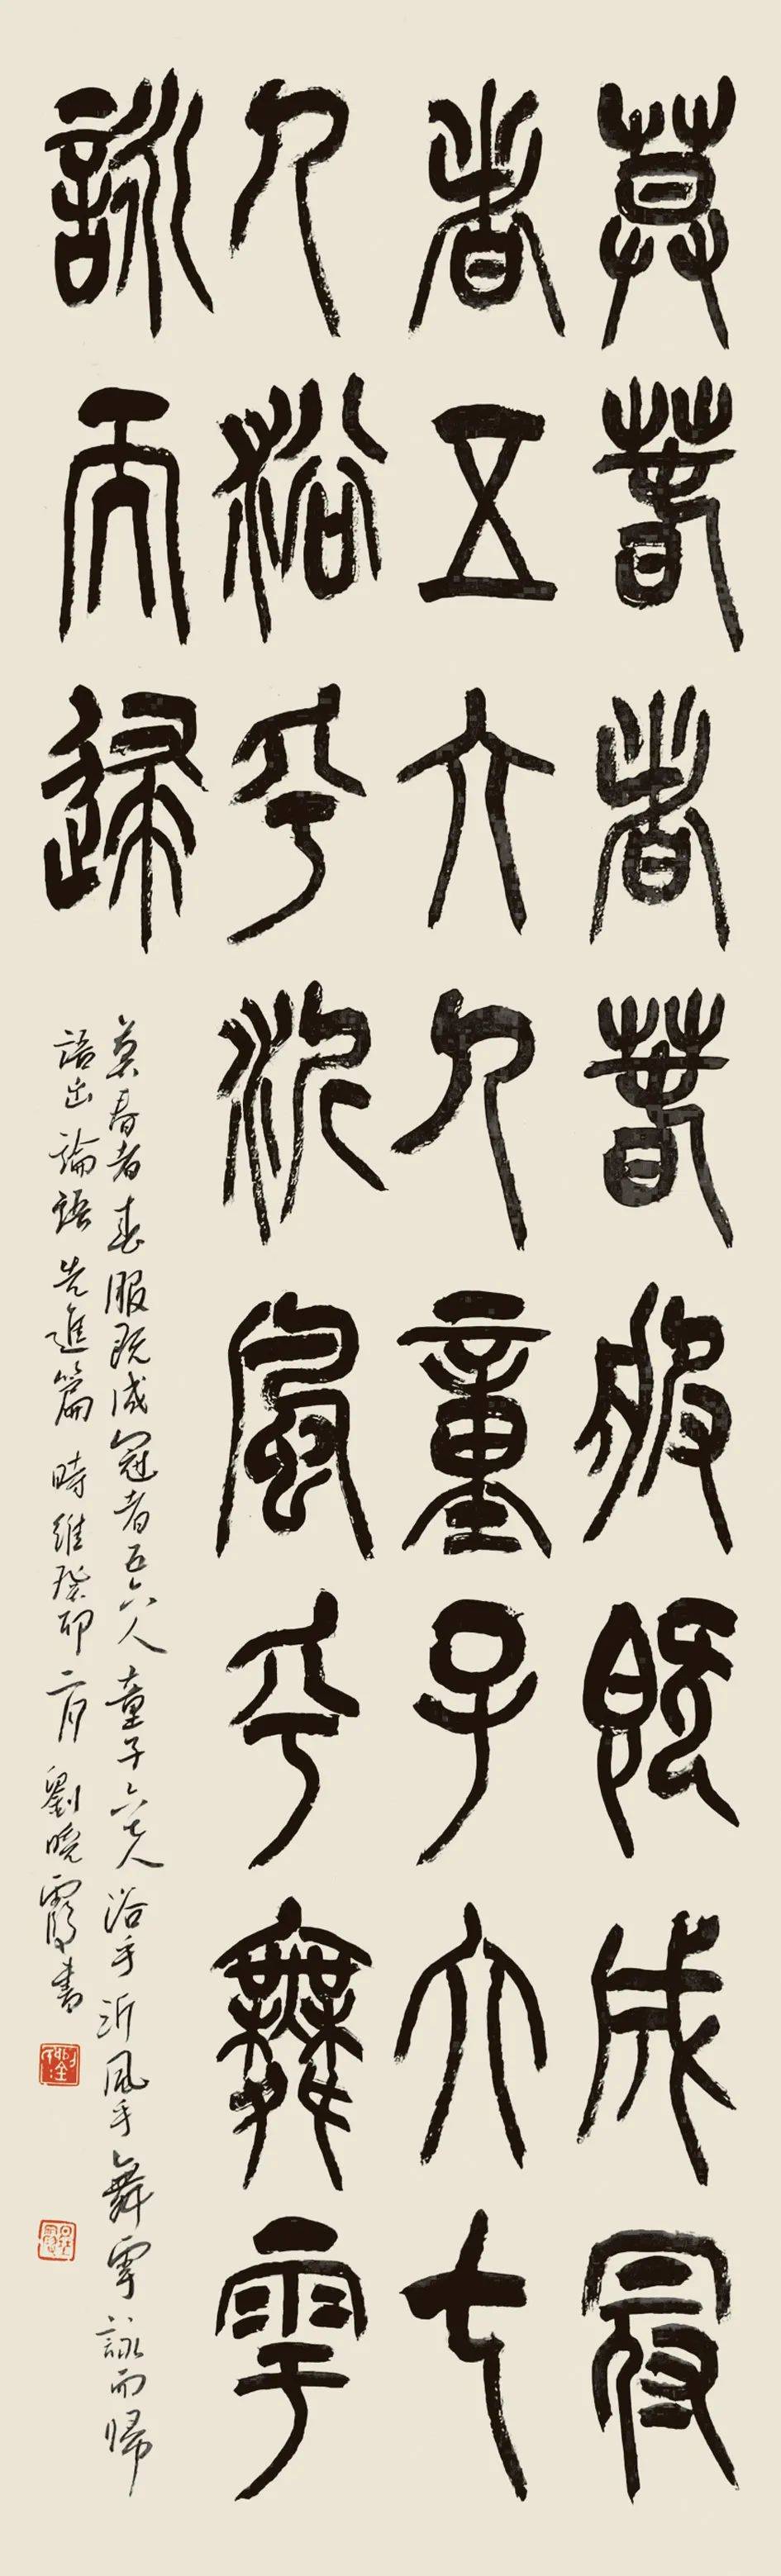 莫春者春服既成冠
者五六人童子六七
人浴乎沂風乎舞雩
詠而歸
莫春者春服既成冠者五六人童子六七人浴乎沂風乎舞雩詠而歸
語出論語先進篇時維癸卯二月劉曉霞書